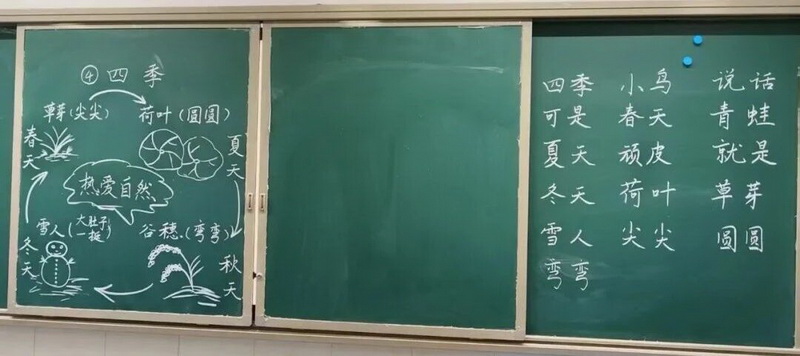 ④四季
草芽(尖尖) 荷叶(圆圆)
春天
夏天
热爱自然
雪人(大肚子一挺) 谷穗(弯弯)
冬天
秋天
四季 小鸟 说话
可是 春天 青蛙
夏天 顽皮 就是
冬天 荷叶 草芽
雪人 尖尖 圆圆
弯弯